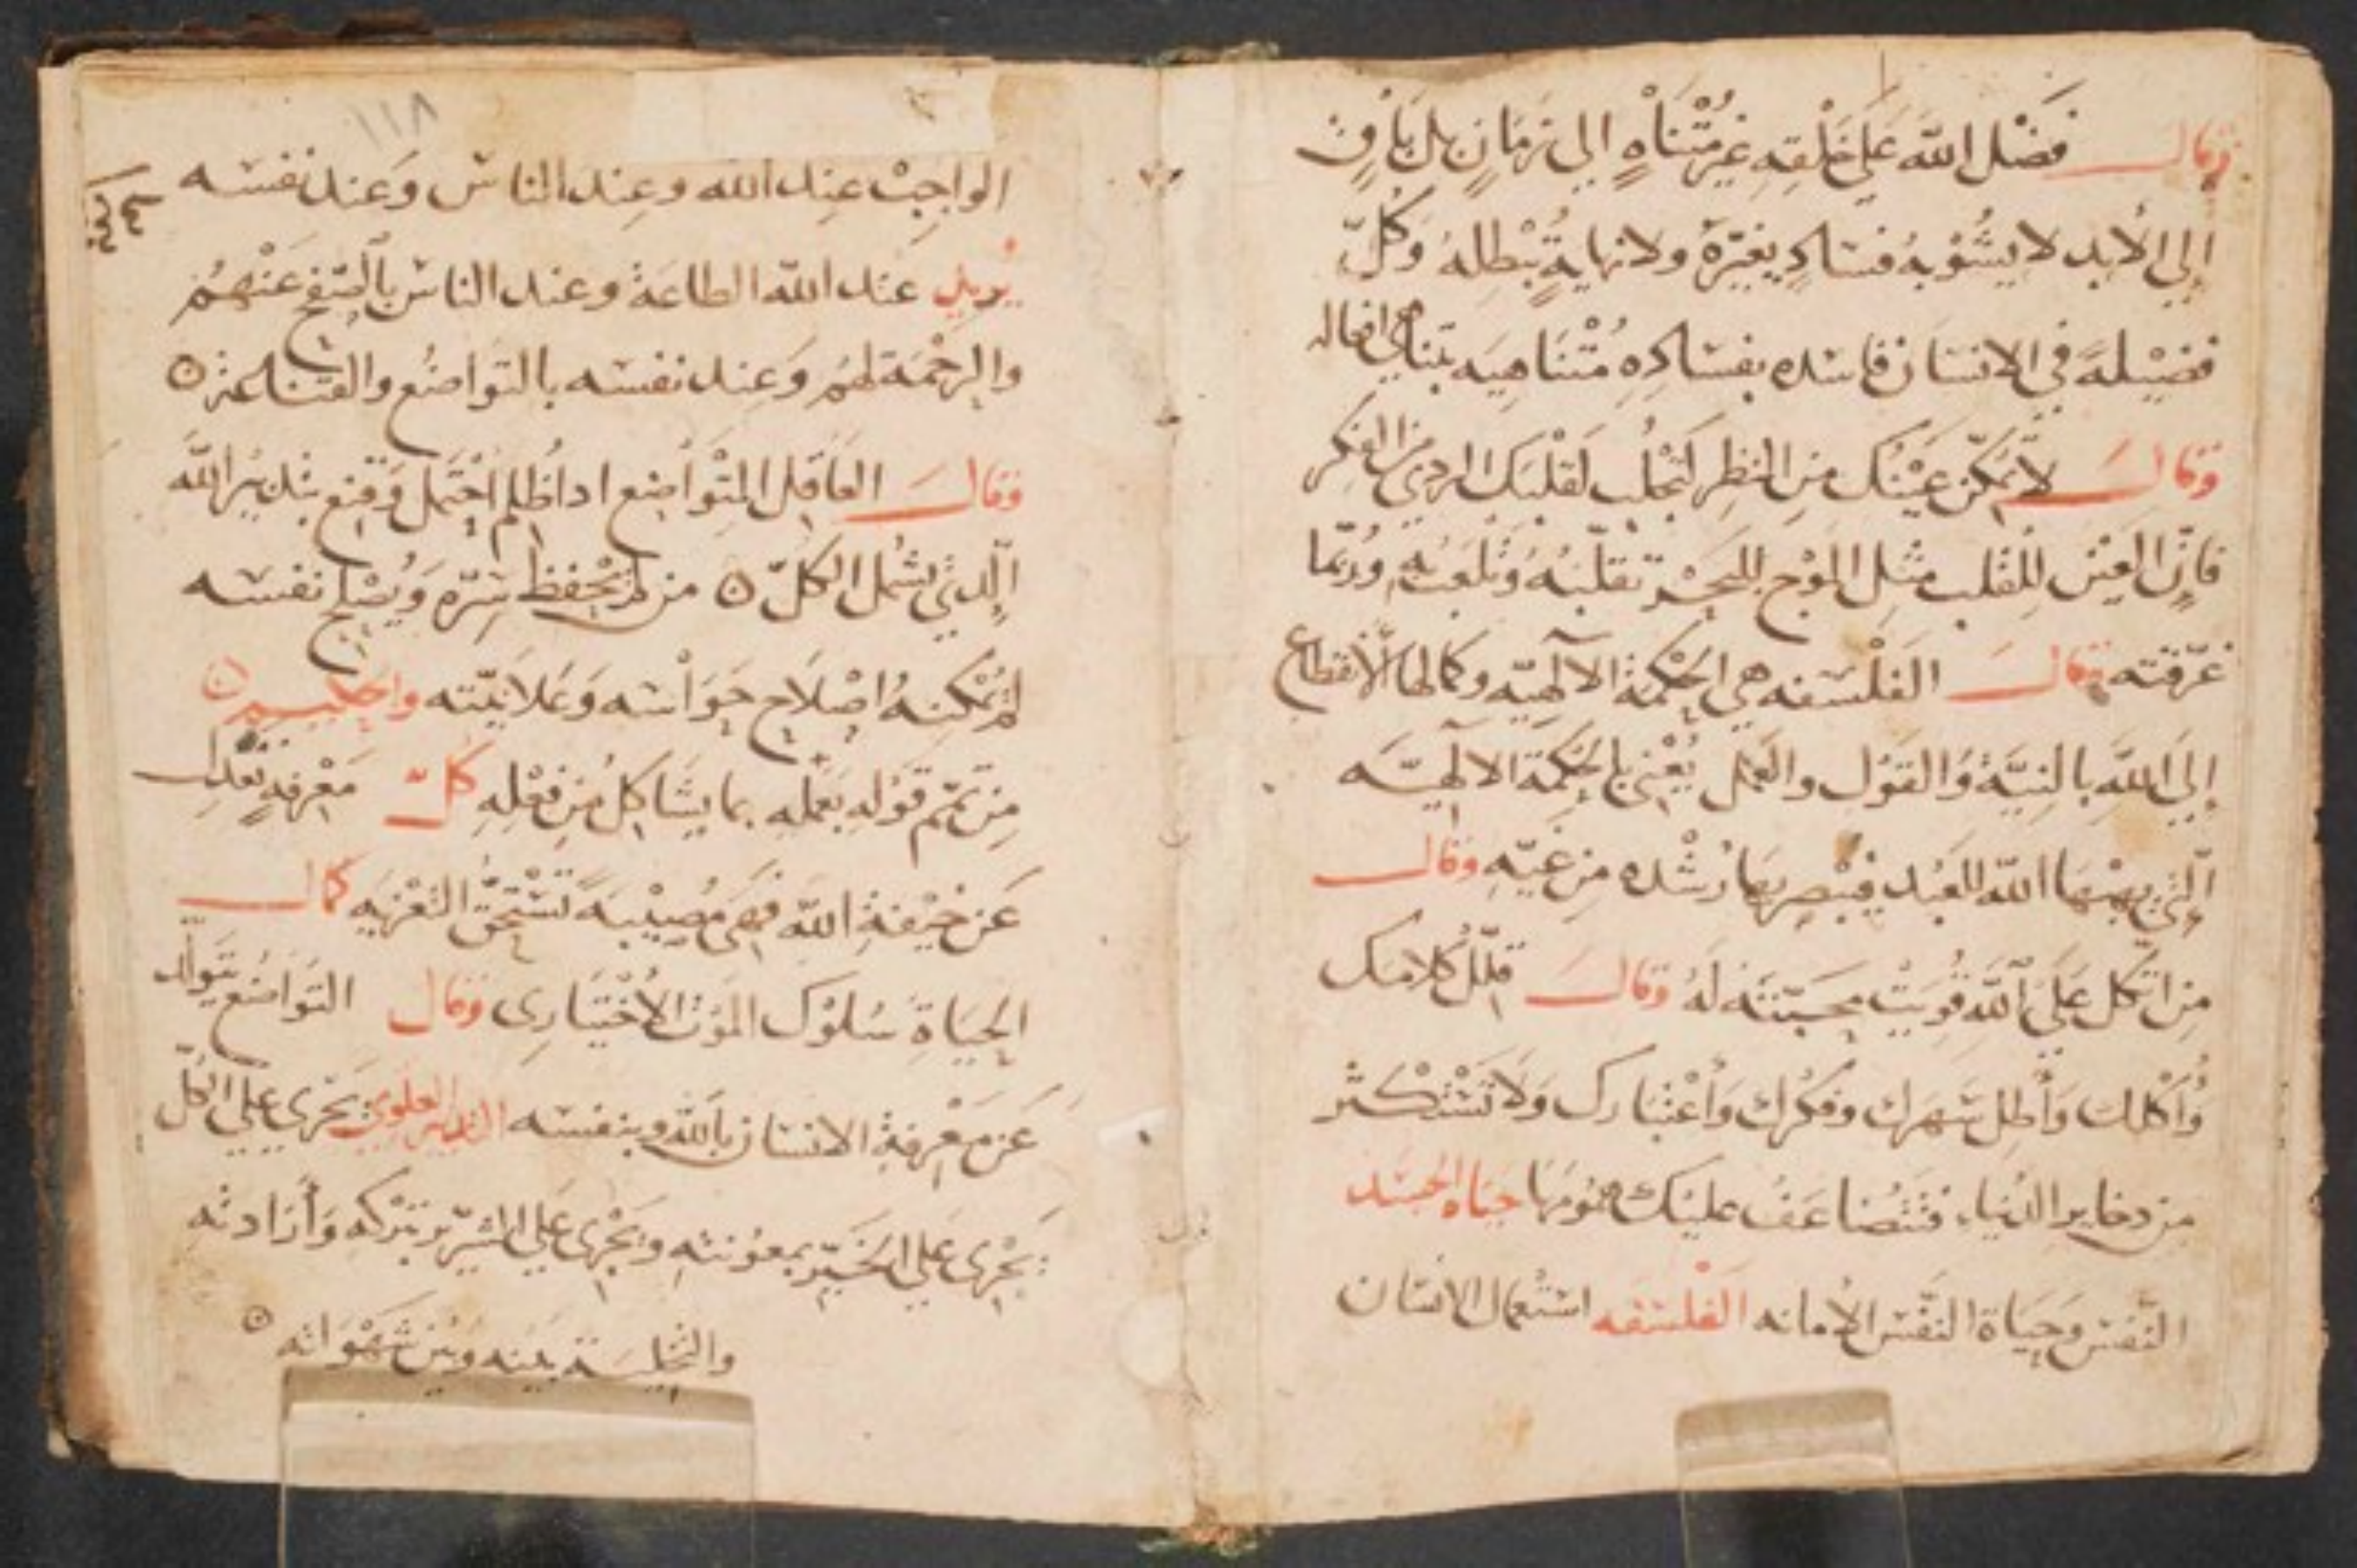 وقال فَضْل الله عَلى خَلْقِه غير مُتْنَاهٍ الي زمَانٍ بل بَاقٍ
إلى الأبد لا يشُوبهُ فسَاد يغيّرهُ ولا نهايةٌ تُبْطِلهُ وَكُلّ
فضيْلة في الانسان فاسده بفسَادِهِ مُتْنَاهِيَه بتناهي افعاله
وقال لا تمكّن عَيْنك من النظر لتجْلُب لقلبَك الردي من الفكر
فانّ العيْن للقلب مثل الموْج للبحر تقلّبهُ وتلعَبُ بهِ ورُبّما
غرّقته وقال الفلْسَفه هي الحكْمة الالهيّه وكمالها الانقطاع
إلى الله بالنيّة وَالقوْل والعمل يُعْني بالحكمَة الالهيّه
الّتي يهبْهَا الله للعَبْد فيُبْصِر بهَا رُشْده من غيّهِ وقال
من اتّكل عَلَى الله قُويَتْ محبّته لَهُ وقال قلّل كلامك
وَأكلك وَأطل سَهرك وفكْرك وَأعْتبَارك وَلا تسْتكْثر
من دخاير الدُنياء فتتضاعَف عليْك همُومَها حياه الجسَد
النّفس وحيَاة النّفس الأمانه الفلسَفه استعمال الانسان
١١٨
الواجبْ عِند الله وعِند الناس وَعند نفسَه
يُريد عَند الله الطاعَة وعند الناس بالصّفح عَنْهمُ
والرحْمَة لهُم وَعِند نفسَه بالتوَاضُع والقنَاعَة ۞
وقال العَاقِل المتْوَاضِع اداظُلم احْتَمل وَقنِع بتدبيْر الله
الّذي يشْمُل الكلّ ۞ من لم يحْفظ سِرّه وَيُصْلح نفسَه
لم يُمْكنهُ اصْلَاح حَوَاسّه وَعَلانيّته والحكيم
من تمّم قوْله بعَملهِ بما يشَاكل من فعْلهِ كلّ مَعْرفهٍ تعْدل
عَن خيْفةِ الله فهي مُصِيْبَة تسْتَحقّ التعْزيه كمال
الحيَاةِ سُلوْك الموْت الأختيَارى وقال التوَاضُع يتولّد
عَن معْرفة الانسان بالله وبنفسَه التدبير العلوي يَجْري على الكلّ
يَجْرى عَلي الخيّر بمعوُنته ويَجْرى عَلي الشرّير بتركه وَأرادته
والتخليَة بينه وَبيْن شهْوَاته ۞